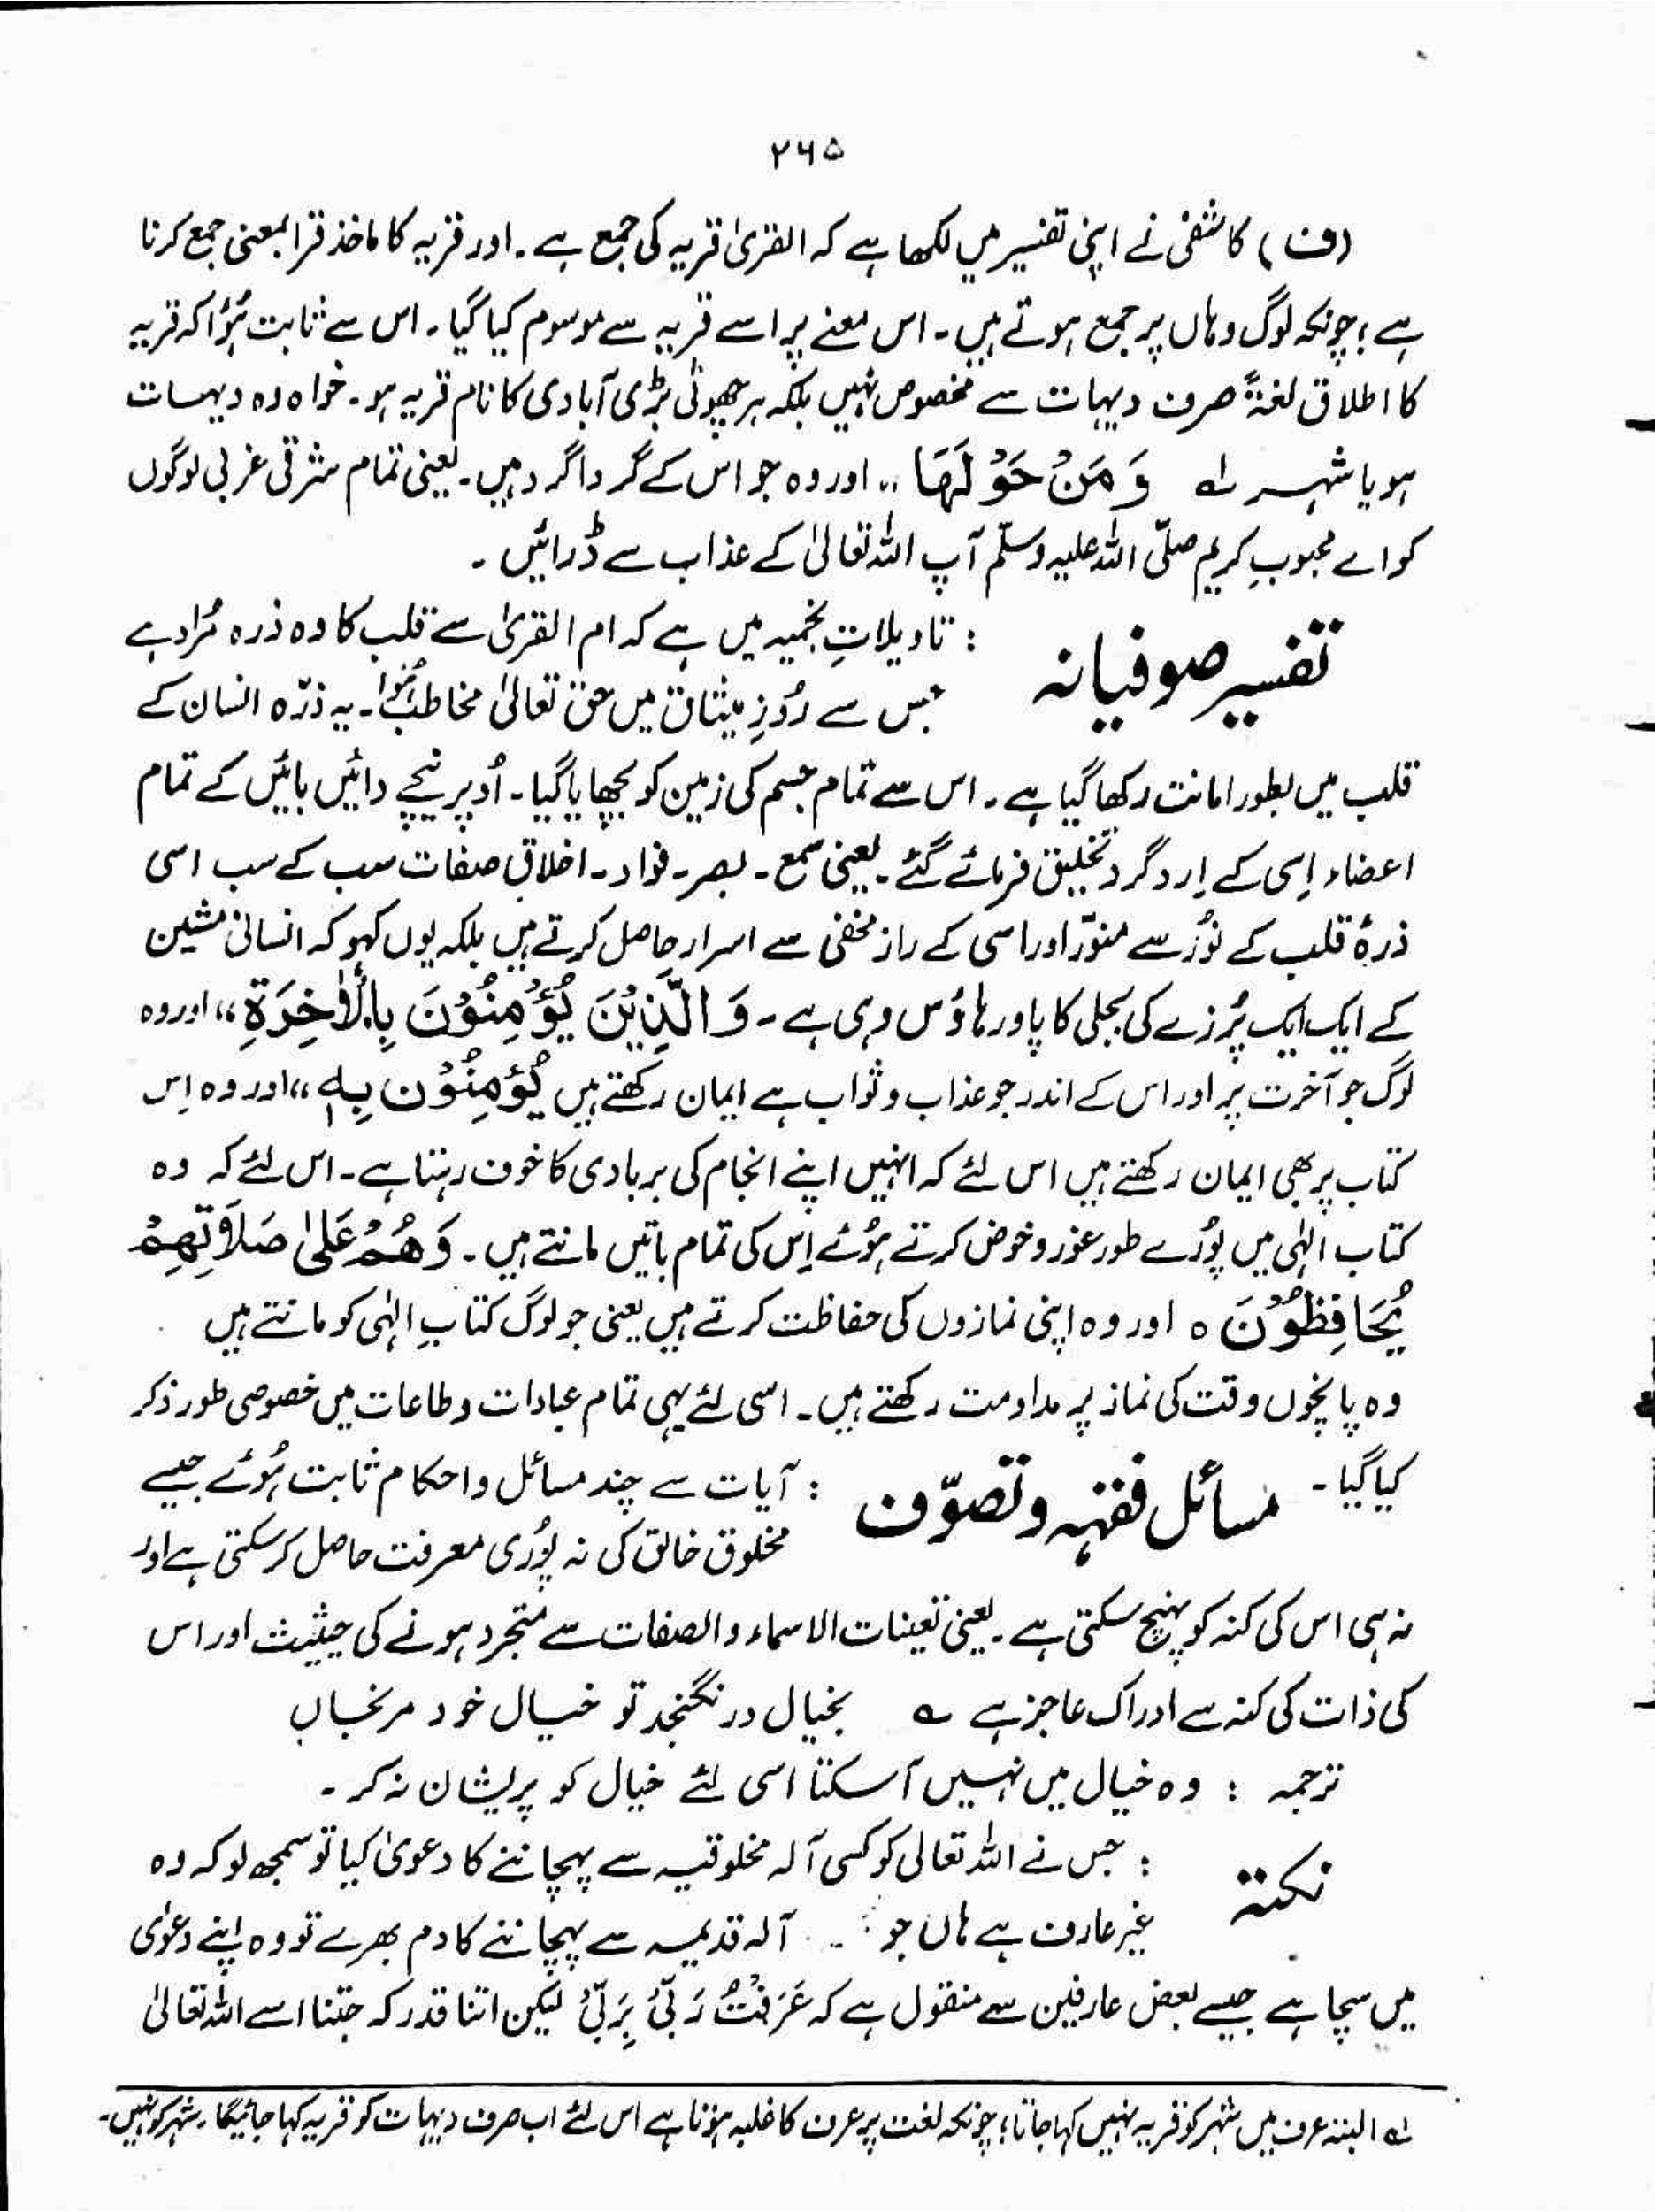 ۲۶۵
(ف) کاشفی نے اپنی تفسیر میں لکھا ہے کہ القریٰ قریہ کی جمع ہے۔ اور قریہ کا ماخذ قرا بمعنی جمع کرنا
ہے؛ چونکہ لوگ وہاں پر جمع ہوتے ہیں۔ اس معنے پر اسے قریہ سے موسوم کیا گیا۔ اس سے ثابت ہُوا کہ قریہ
کا اطلاق لغۃً صرف دیہات سے مخصوص نہیں بلکہ ہر چھوٹی بڑی آبادی کا نام قریہ ہو۔ خواہ وہ دیہات
ہو یا شہر ؎ وَ مَنْ حَوْلَهَا ،، اور وہ جو اس کے گرداگرد ہیں۔ یعنی تمام شرقی غربی لوگوں
کو اے محبوبِ کریم صلّی اللہ علیہ وسلّم آپ اللہ تعالیٰ کے عذاب سے ڈرائیں ۔
تفسیر صوفیانہ : تاویلاتِ نجمیہ میں ہے کہ ام القریٰ سے قلب کا وہ ذرہ مُراد ہے
جس سے رُوزِ میثاق میں حق تعالیٰ مخاطب ہُوا۔ یہ ذرّہ انسان کے
قلب میں بطور امانت رکھا گیا ہے۔ اس سے تمام جسم کی زمین کو بچھایا گیا۔ اُوپر نیچے دائیں بائیں کے تمام
اعضاء اِسی کے اِردگرد تخلیق فرمائے گئے۔ یعنی سمع۔ بصر۔ فواد۔ اخلاق صفات سب کے سب اسی
ذرۂ قلب کے نُور سے منوّر اور اسی کے راز مخفی سے اسرار حاصل کرتے ہیں بلکہ یوں کہو کہ انسانی مشین
کے ایک ایک پُرزے کی بجلی کا پاور ہاؤس وہی ہے۔ وَالَّذِیْنَ یُؤْمِنُوْنَ بِالْاٰخِرَةِ ،، اور وہ
لوگ جو آخرت پر اور اس کے اندر جو عذاب و ثواب ہے ایمان رکھتے ہیں یُؤْمِنُوْنَ بِهٖ ،، اور وہ اِس
کتاب پر بھی ایمان رکھتے ہیں اس لئے کہ انہیں اپنے انجام کی بربادی کا خوف رہتا ہے۔ اس لئے کہ وہ
کتاب الہٰی میں پُورے طور غور و خوض کرتے ہُوئے اِس کی تمام باتیں مانتے ہیں۔ وَهُمْ عَلیٰ صَلَاتِهِمْ
یُحَافِظُوْنَ ہ اور وہ اپنی نمازوں کی حفاظت کرتے ہیں یعنی جو لوگ کتابِ الہٰی کو مانتے ہیں
وہ پانچوں وقت کی نماز پر مداومت رکھتے ہیں۔ اسی لئے یہی تمام عبادات و طاعات میں خصوصی طور ذکر
کیا گیا۔ مسائل فقہہ و تصوّف : آیات سے چند مسائل و احکام ثابت ہُوئے جیسے
مخلوق خالق کی نہ پُوری معرفت حاصل کرسکتی ہے اور
نہ ہی اس کی کنہ کو پہنچ سکتی ہے۔ یعنی تعینات الاسماء والصفات سے متجرد ہونے کی حیثیت اور اس
کی ذات کی کنہ سے ادراک عاجز ہے ؎ بخیال درنگنجد تو خیال خود مرنجاں
ترجمہ : وہ خیال میں نہیں آسکتا اسی لئے خیال کو پریشان نہ کر ۔
نکتہ : جس نے اللہ تعالیٰ کو کسی آلہ مخلوقیہ سے پہچاننے کا دعویٰ کیا تو سمجھ لو کہ وہ
غیر عارف ہے ہاں جو آلہ قدیمیہ سے پہچاننے کا دم بھرے تو وہ اپنے دعوٰی
میں سچا ہے جیسے بعض عارفین سے منقول ہے کہ عَرَفْتُ رَبِّیْ بِرَبِّیْ لیکن اتنا قدر کہ جتنا اسے اللہ تعالیٰ
؎ البتہ عرف میں شہر کو قریہ نہیں کہا جاتا؛ چونکہ لغت پر عرف کا غلبہ ہوتا ہے اس لئے اب صرف دیہات کو قریہ کہا جائیگا۔ شہر کو نہیں۔